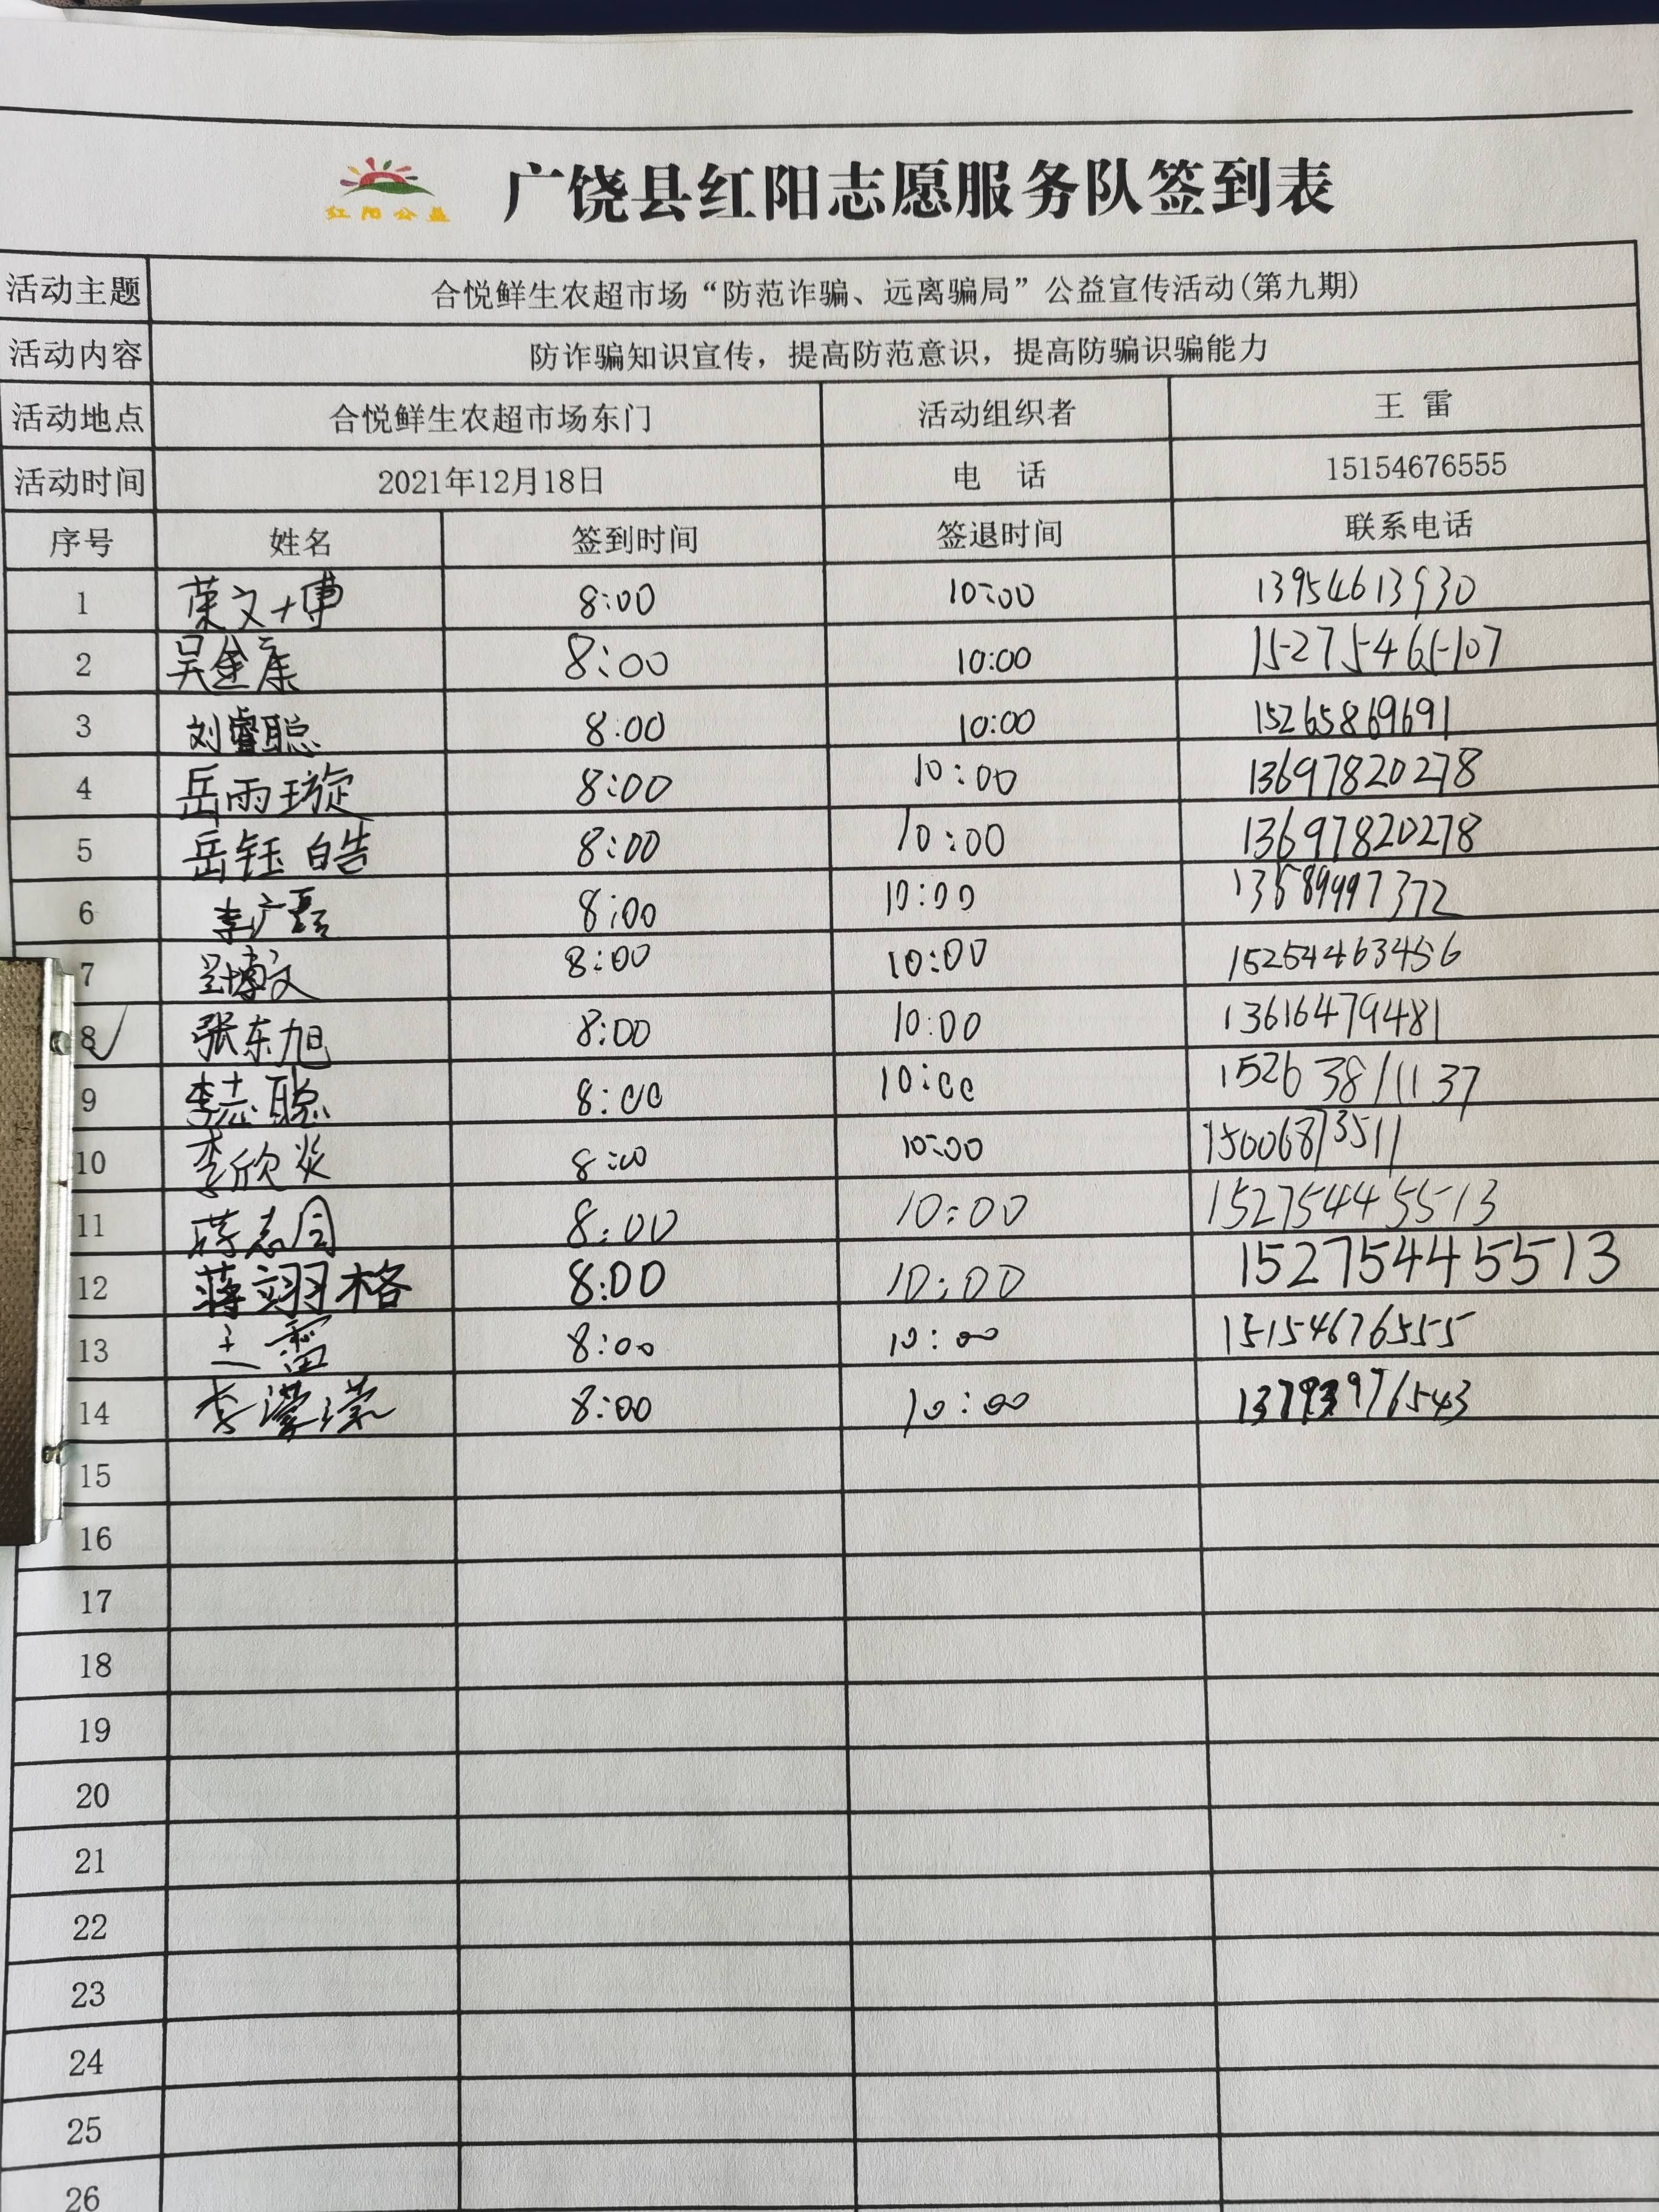 红阳公益
广饶县红阳志愿服务队签到表
活动主题 合悦鲜生农超市场“防范诈骗、远离骗局”公益宣传活动(第九期)
活动内容 防诈骗知识宣传，提高防范意识，提高防骗识骗能力
活动地点 合悦鲜生农超市场东门 活动组织者 王 雷
活动时间 2021年12月18日 电 话 15154676555
序号 姓名 签到时间 签退时间 联系电话
1 荣文博 8:00 10:00 13954613930
2 吴金康 8:00 10:00 15275465107
3 刘睿聪 8:00 10:00 15265869691
4 岳雨璇 8:00 10:00 13697820278
5 岳钰皓 8:00 10:00 13697820278
6 李广磊 8:00 10:00 13589997372
7 8:00 10:00 15254463456
8 张东旭 8:00 10:00 13616479481
9 李志聪 8:00 10:00 15263811137
10 李欣炎 8:00 10:00 15006873511
11 蒋志国 8:00 10:00 15275445513
12 蒋翊格 8:00 10:00 15275445513
13 王雷 8:00 10:00 15154676555
14 李濛濛 8:00 10:00 13793976543
15
16
17
18
19
20
21
22
23
24
25
26